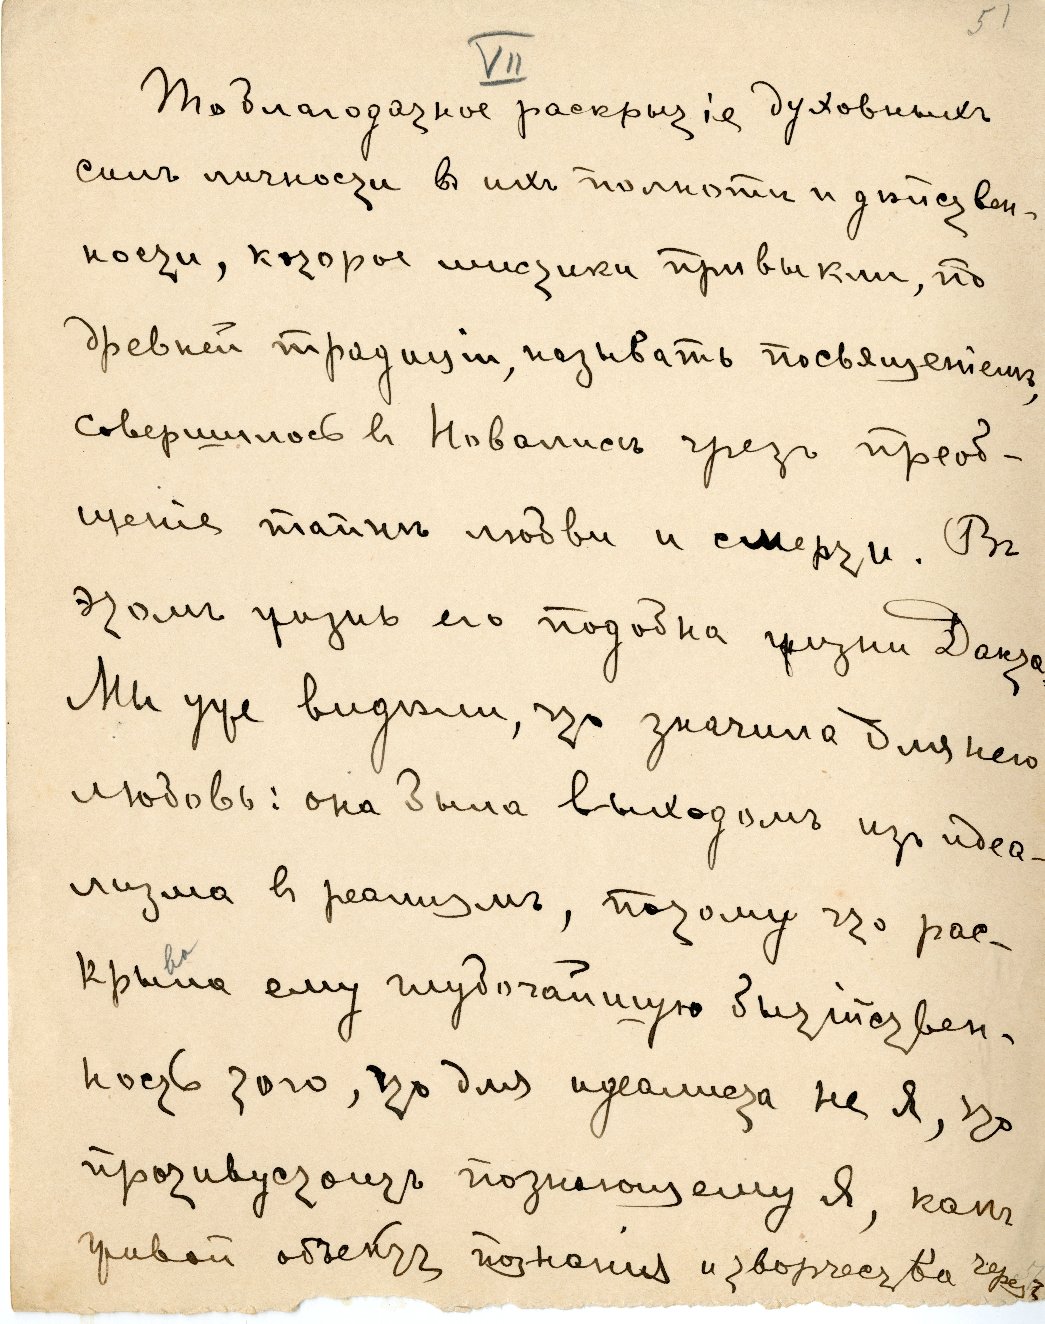 51
VII
То благодатное раскрытіе духовныхъ
силъ личности въ ихъ полнотѣ и дѣйствен-
ности, которое мистики привыкли, по
древней традиціи, называть посвященіемъ,
совершилось въ Новалисѣ чрезъ преоб-
щеніе тайнѣ любви и смерти. Въ
этомъ жизнь его подобна жизни Данта.
Мы уже видѣли, что значила для него
любовь: она была выходомъ изъ идеа-
лизма въ реализмъ, потому что рас-
крывала ему глубочайшую бытійствен-
ность того, что для идеалиста не я, что
противустоитъ познающему я, какъ
живой объектъ познанія и творчества черезъ